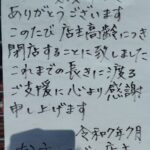 ありがとうございます
このたび 店主高齢につき
閉店することに致しました
これまでの長きに渡る
ご支援に心より感謝
申し上げます
令和7年7月